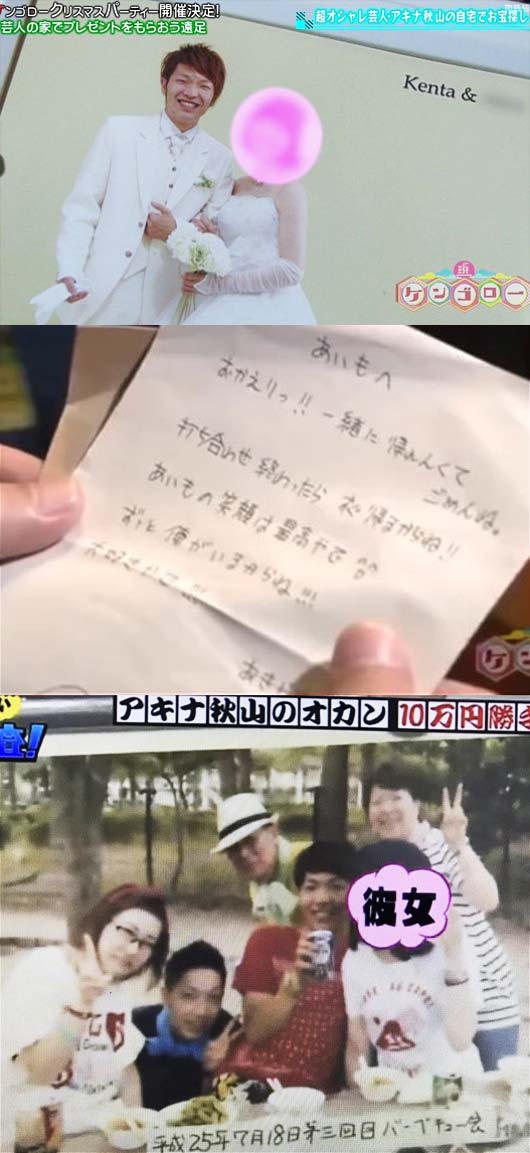 ンゴロークリスマスパーティー開催決定!
芸人の家でプレゼントをもらおう遠足
超オシャレ芸人・アキナ秋山の自宅でお宝探し
Kenta &
ケンゴロー
あいもへ
おかえりっ!! 一緒に帰れんくて
ごめんね。
打ち合わせ終わったら すぐ帰るからね!!
あいもの笑顔は最高やで
ずっと俺がいるからね!!!
ケンゴ
アキナ秋山のオカン 10万円勝
彼女
平成25年7月18日第三回目バーベキュー会